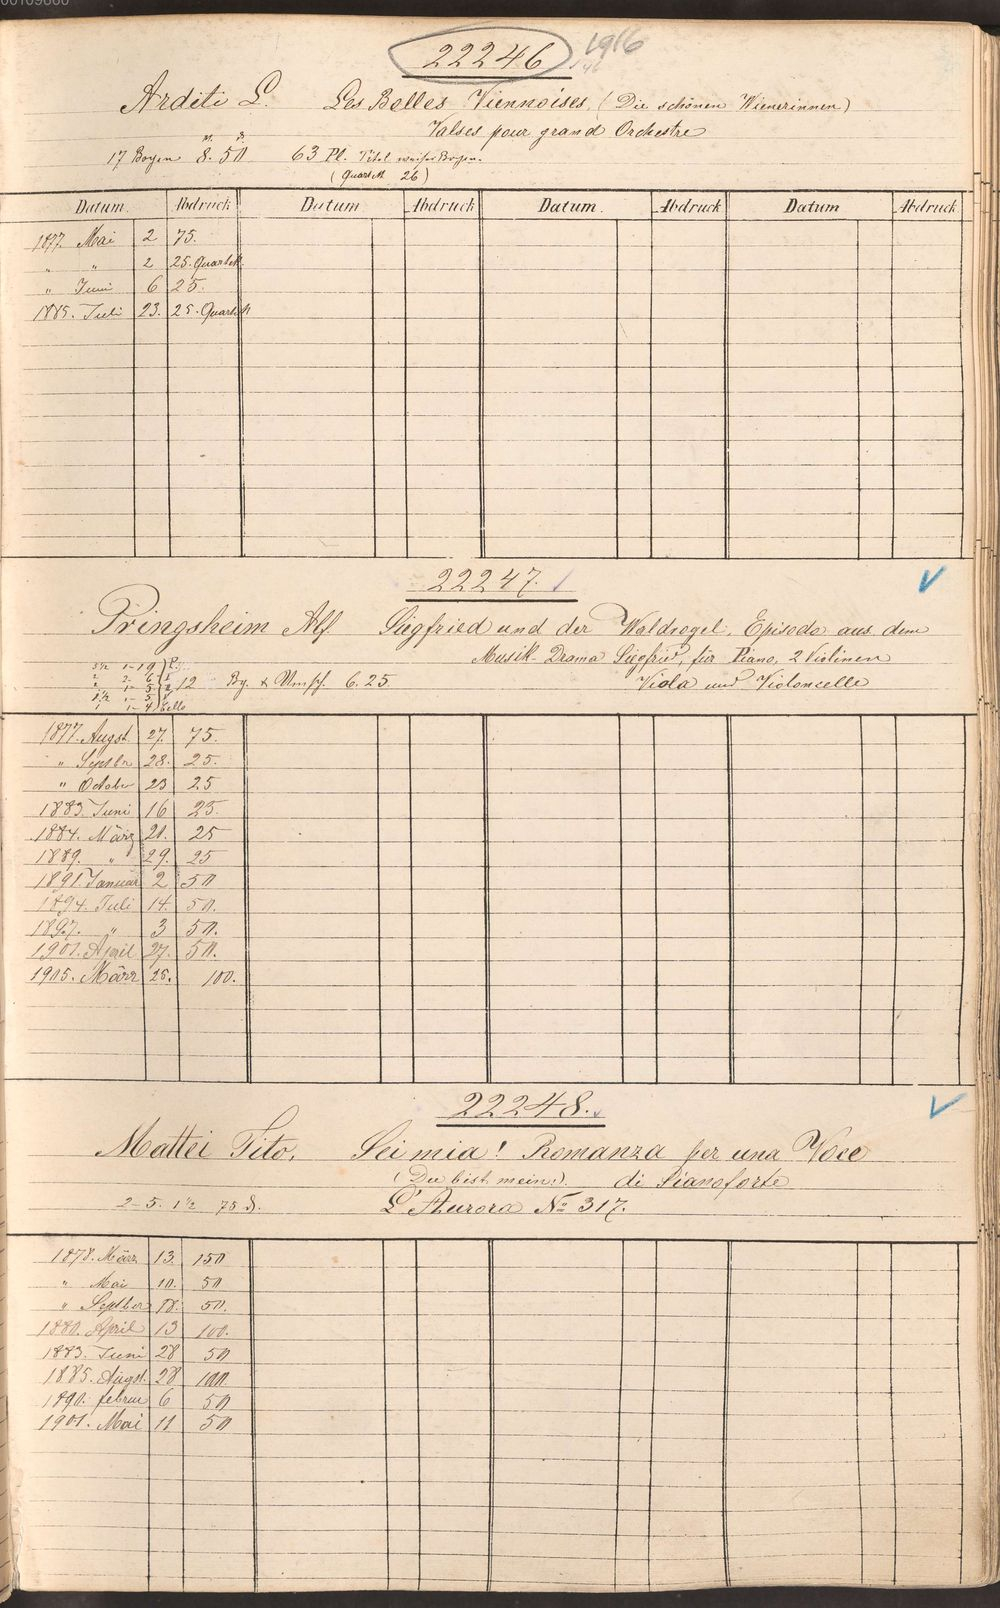 22246 1916
46
Arditi L. Les Belles Viennoises, (Die schönen Wienerinnen)
Valses pour grand Orchestre
M. d.
17 Bogen 8. 50 63 Pl. Titel weißer Bogen.
(Quartett 26)
Datum. Abdruck Datum Abdruck Datum. Abdruck Datum Abdruck
1877. Mai 2 75.
" " 2 25. Quartett
" Juni 6 25.
1885. Juli 23. 25. Quartett
22247.
Pringsheim Alf. Siegfried und der Waldvogel, Episode aus dem
Musik-Drama Siegfried, für Piano, 2 Violinen
Viola und Violoncelle
12 Bg. & Umschl. 6.25.
1- 4 Cello
1877. Augst. 27. 75.
" Septbr 28. 25.
" October 23 25
1883. Juni 16 25.
1884. März 21. 25
1889. " 29. 25
1891. Januar 2 50
1894. Juli 14. 50.
1897. " 3 50.
1901. April 27. 50.
1905. März 25. 100.
22248.
Mattei Tito. Sei mia! Romanza per una Voce
(Du bist mein!). di Pianoforte
2-5. 1½ 75 d. L'Aurora No 317.
1878. März 13. 150
" Mai 10. 50
" Septber 18. 50.
1880. April 13 100.
1883. Juni 28 50
1885. Augst. 28 100.
1890. februar 6 50
1901. Mai 11 50